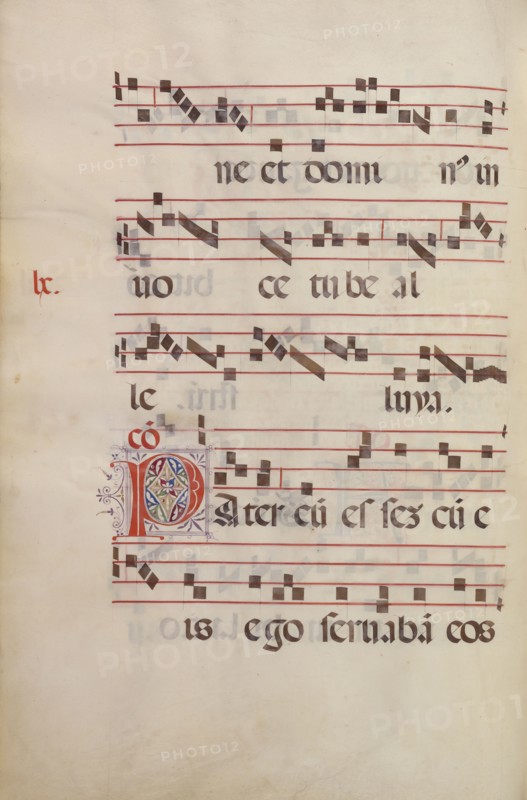 ne et domi nꝰ in
lx. uo ce tube al
le luya.
cō
Pater cū essez cū e
is ego seruabā eos
PHOTO12